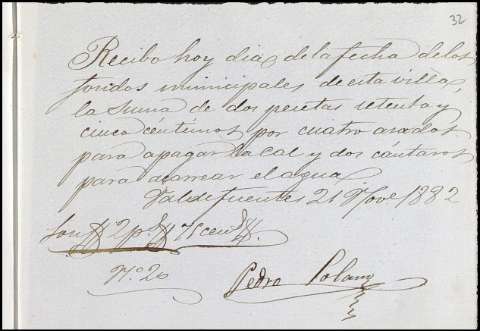 32
Recibo hoy dia de la fecha de los
fondos municipales de esta villa,
la suma de dos pesetas setenta y
cinco céntimos por cuatro asados
para apagar la cal y dos cántaros
para acarrear el agua
Valdefuentes 21 Nove 1882
Son 2 p.s 75 cen.
Nº 20
Pedro Solano